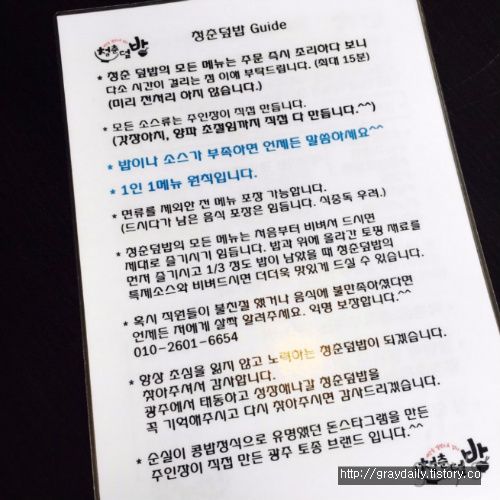 청춘덮밥 Guide
청춘덮밥
* 청춘 덮밥의 모든 메뉴는 주문 즉시 조리하다 보니
다소 시간이 걸리는 점 이해 부탁드립니다. (최대 15분)
(미리 전처리 하지 않습니다.)
* 모든 소스류는 주인장이 직접 만듭니다.
(갓장아치, 양파 초절임까지 직접 다 만듭니다.^^)
* 밥이나 소스가 부족하면 언제든 말씀하세요^^
* 1인 1메뉴 원칙입니다.
* 면류를 제외한 전 메뉴 포장 가능합니다.
(드시다가 남은 음식 포장은 힘듭니다. 식중독 우려.)
* 청춘덮밥의 모든 메뉴는 처음부터 비벼서 드시면
제대로 즐기시기 힘듭니다. 밥과 위에 올라간 토핑 재료를
먼저 즐기시고 1/3 정도 밥이 남았을 때 청춘덮밥의
특제소스와 비벼드시면 더더욱 맛있게 드실 수 있습니다.
* 혹시 직원들이 불친절 했거나 음식에 불만족하셨다면
언제든 저에게 살짝 알려주세요. 익명 보장합니다.^^
010-2601-6654
* 항상 초심을 잃지 않고 노력하는 청춘덮밥이 되겠습니다.
찾아주셔서 감사합니다.
광주에서 태동하고 성장해나갈 청춘덮밥을
꼭 기억해주시고 다시 찾아주시면 감사드리겠습니다.
* 순실이 콩밥정식으로 유명했던 돈스타그램을 만든
주인장이 직접 만든 광주 토종 브랜드 입니다.^^
http://graydaily.tistory.co